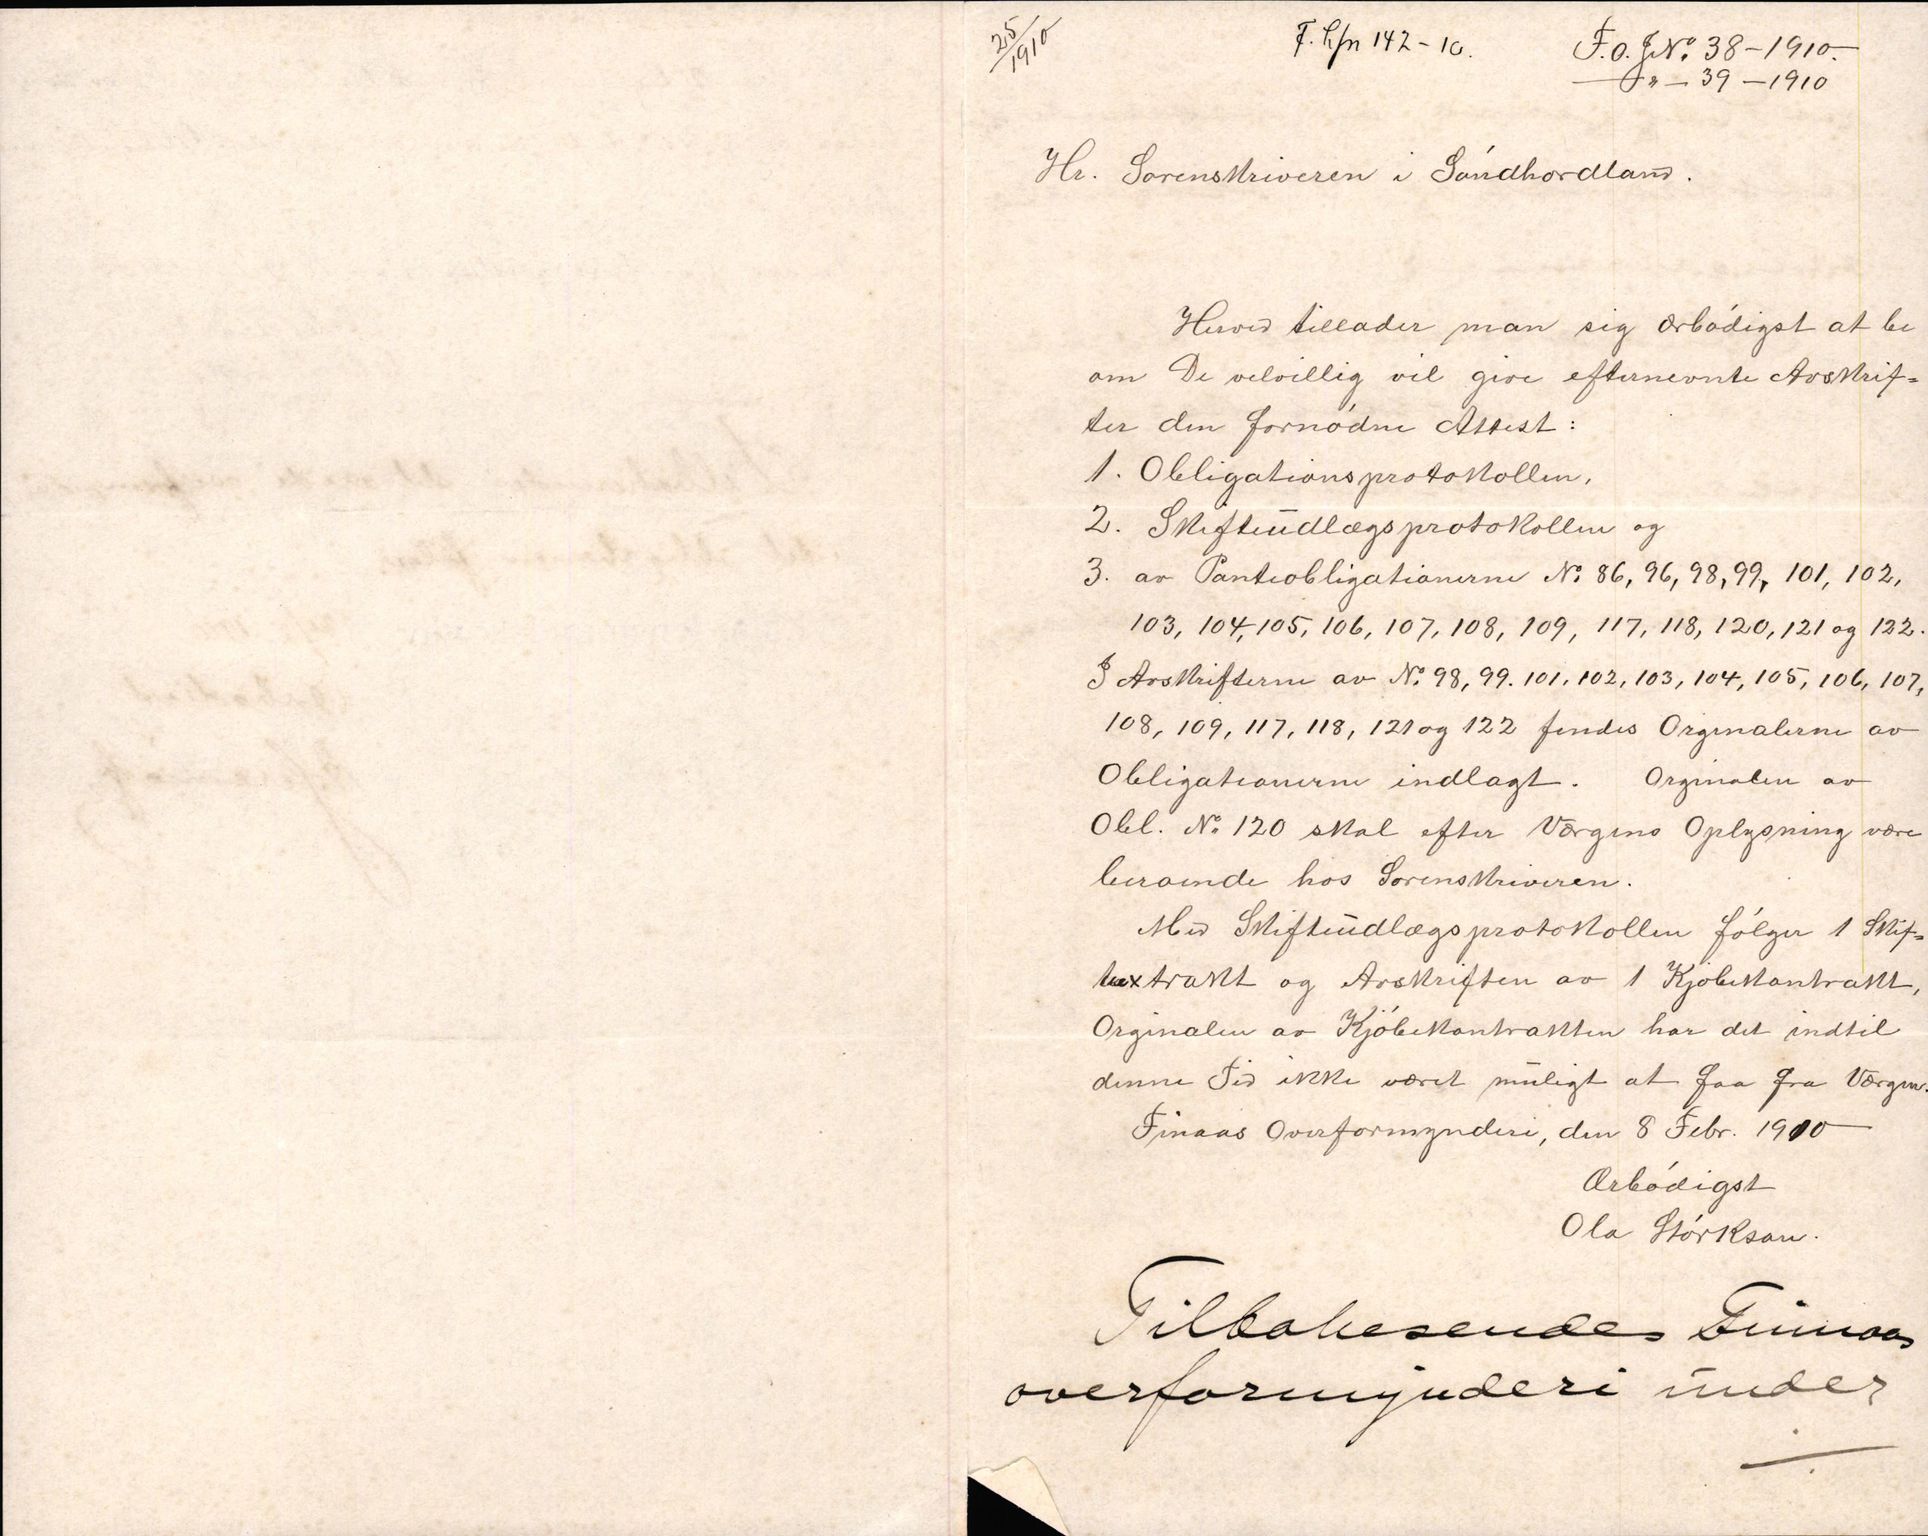 25/1910
F. hfn 142 - 10.
F.o. J.No. 38 - 1910.
— " — 39 - 1910
Hr. Sorenskriveren i Søndhordland.
Herved tillader man sig ærbødigst at be
om De velvillig vil give efternevnte Avskrif=
ter den fornødne Attest:
1. Obligationsprotokollen,
2. Skifteudlægsprotokollen og
3. av Panteobligationerne No. 86, 96, 98, 99, 101, 102,
103, 104, 105, 106, 107, 108, 109, 117, 118, 120, 121 og 122.
I Avskrifterne av No. 98, 99. 101, 102, 103, 104, 105, 106, 107,
108, 109, 117, 118, 121 og 122 findes Orginalerne av
Obligationerne indlagt. Orginalen av
Obl. No. 120 skal efter Værgens Oplysning være
beroende hos Sorenskriveren.
Med Skifteudlægsprotokollen følger 1 Skif=
textrakt og Avskriften av 1 Kjøbekontrakt,
Orginalen av Kjøbekontrakten har det indtil
denne Tid ikke været muligt at faa fra Værgen.
Finaas Overformynderi, den 8 Febr. 1910
Ærbødigst
Ola Størkson.
Tilbakesendes Finnaas
overformynderi under